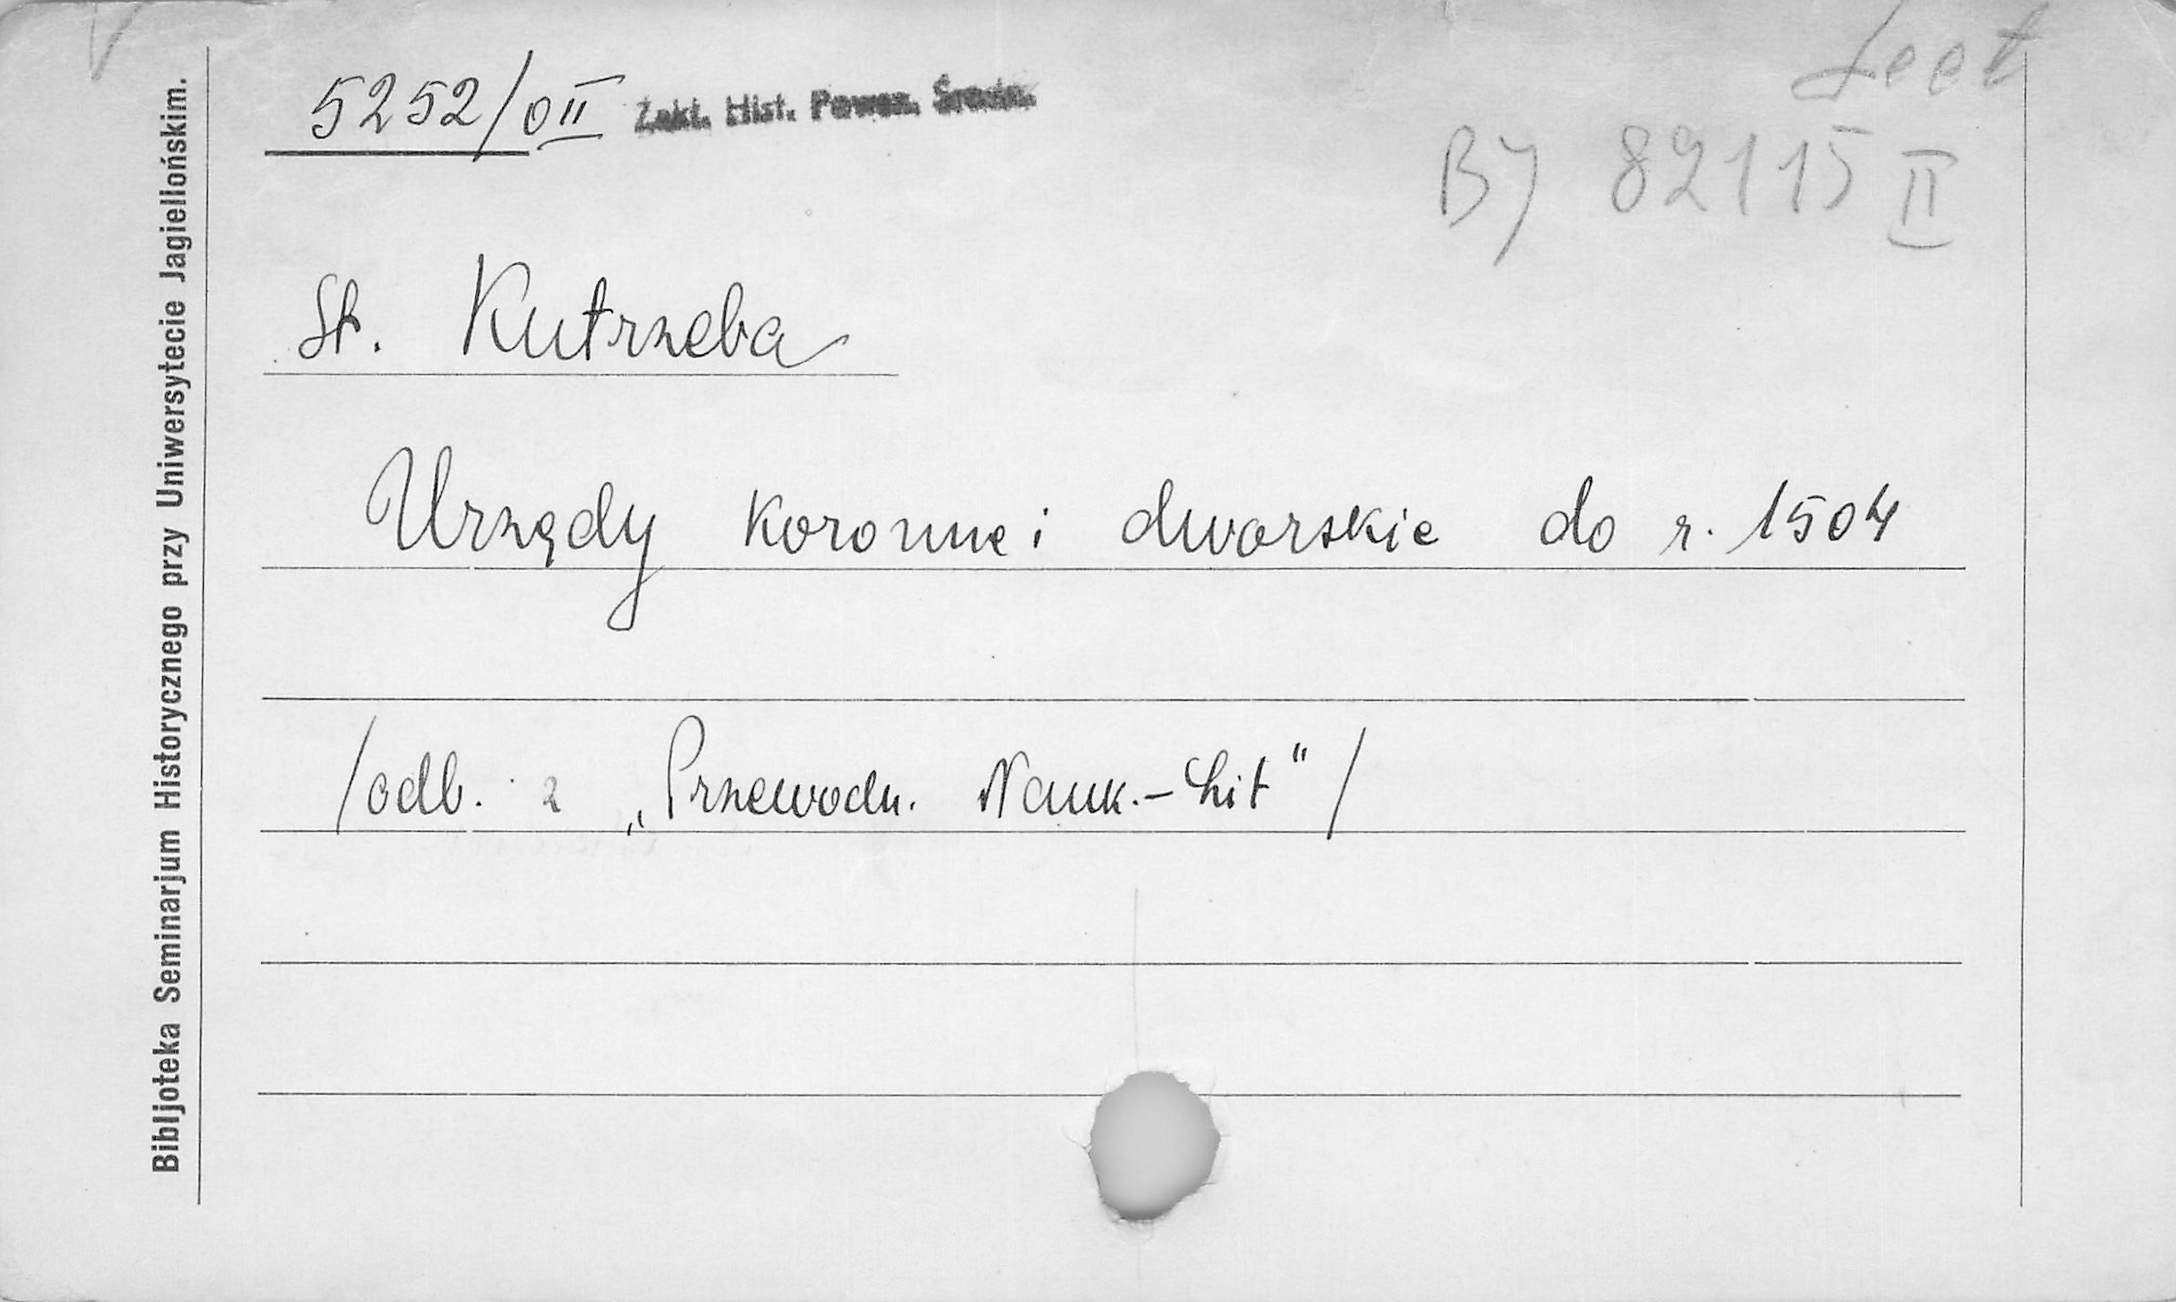 5252/0II Zakł. Hist. Powsz. Średn.
BJ 82115 II
St. Kutrzeba
Urzędy koronne i dworskie do r. 1504
/odb. z „Przewodn. Nauk.-Lit"/
Bibljoteka Seminarjum Historycznego przy Uniwersytecie Jagiellońskim.